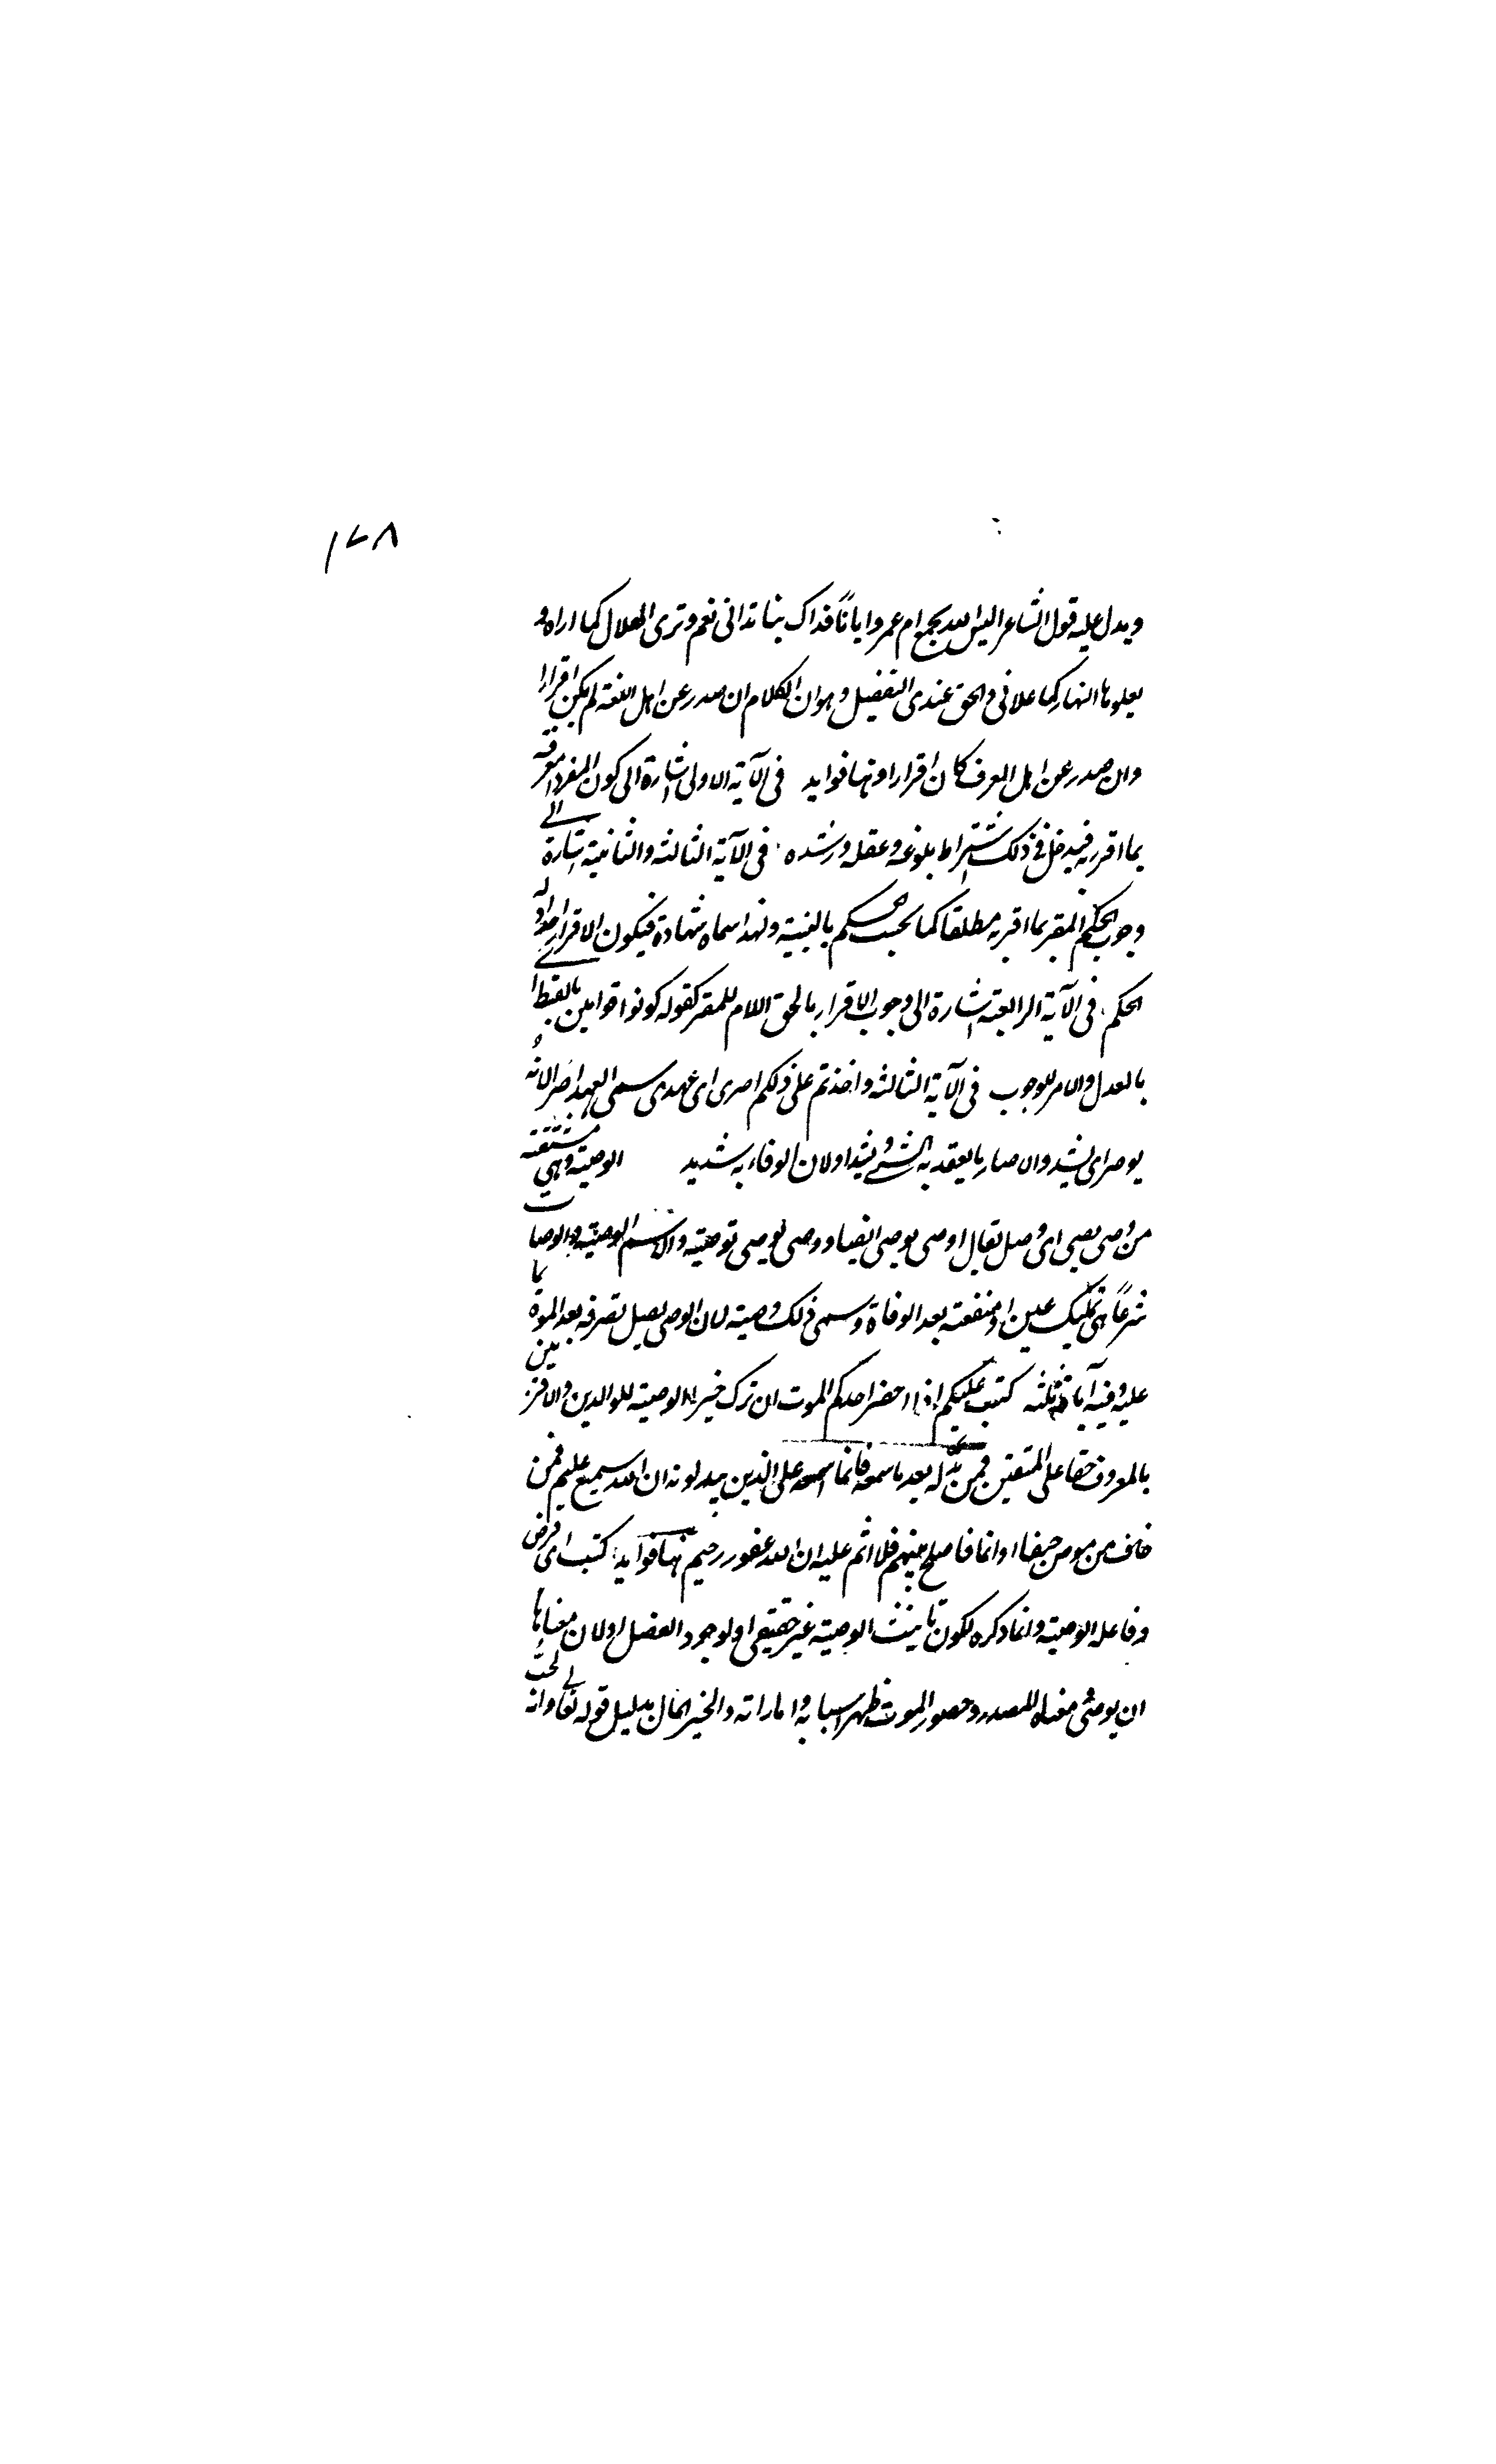 ١٧٨
ويدل عليه قول الشاعر اليس الله يجمع ام عمرو ايانا فذاك بنا تدانى نعم وترى الهلال كما اراه و
يعلوها النهار كما علانى والحق عندى التفصيل وهو ان الكلام ان صدر عن اهل اللغة لم يكن اقرارا
وان صدر عن اهل العرف كان اقرارا وهنا فوايد فى الآية الاولى اشارة الى كون المقر
بما اقر به فيدخل فى ذلك اشتراط بلوغه وعقله ورشده فى الآية الثالثة والثانية اشارة الى
وجوب الحكم المقر بما اقر به مطلقا كما يجب الحكم بالبينة ولهذا سماه شهادة فيكون الاقرار
الحكم فى الآية الرابعة اشارة الى وجوب الاقرار بالحق اللازم للمقر كقوله كونوا قوامين بالقسط اى
بالعدل والامر للوجوب فى الآية الثالثة واخذتم على ذلكم اصرى اى عهدى سمى العهد اصرا لانه
يوصر اى يشد والاصار ما يعقد به الشئ ويشد او لان الوفاء به شديد الوصية وهى مشتقة
من وصى يصى اى وصل يقال اوصى يوصى ايصاء ووصى يوصى توصية والاسم الوصية والوصاية
شرعا هى تمليك عين او منفعة بعد الوفاة وسمى ذلك وصية لان الموصى يصل تصرفه بعد الموت بما
عليه وفيه آيات ثلثة كتب عليكم اذا حضر احدكم الموت ان ترك خيرا الوصية للوالدين والاقربين
بالمعروف حقا على المتقين فمن بدله بعد ما سمعه فانما اثمه على الذين يبدلونه ان الله سميع عليم فمن
خاف من موص جنفا او اثما فاصلح بينهم فلا اثم عليه ان الله غفور رحيم هنا فوايد كتب اى فرض
وفاعله الوصية وانما ذكره لكون تانيث الوصية غير حقيقى او لوجود الفصل او لان معناها
ان يوصى معناه المصدر وحضور الموت ظهر اسبابه واماراته والخير المال بدليل قوله تعالى وانه لحب